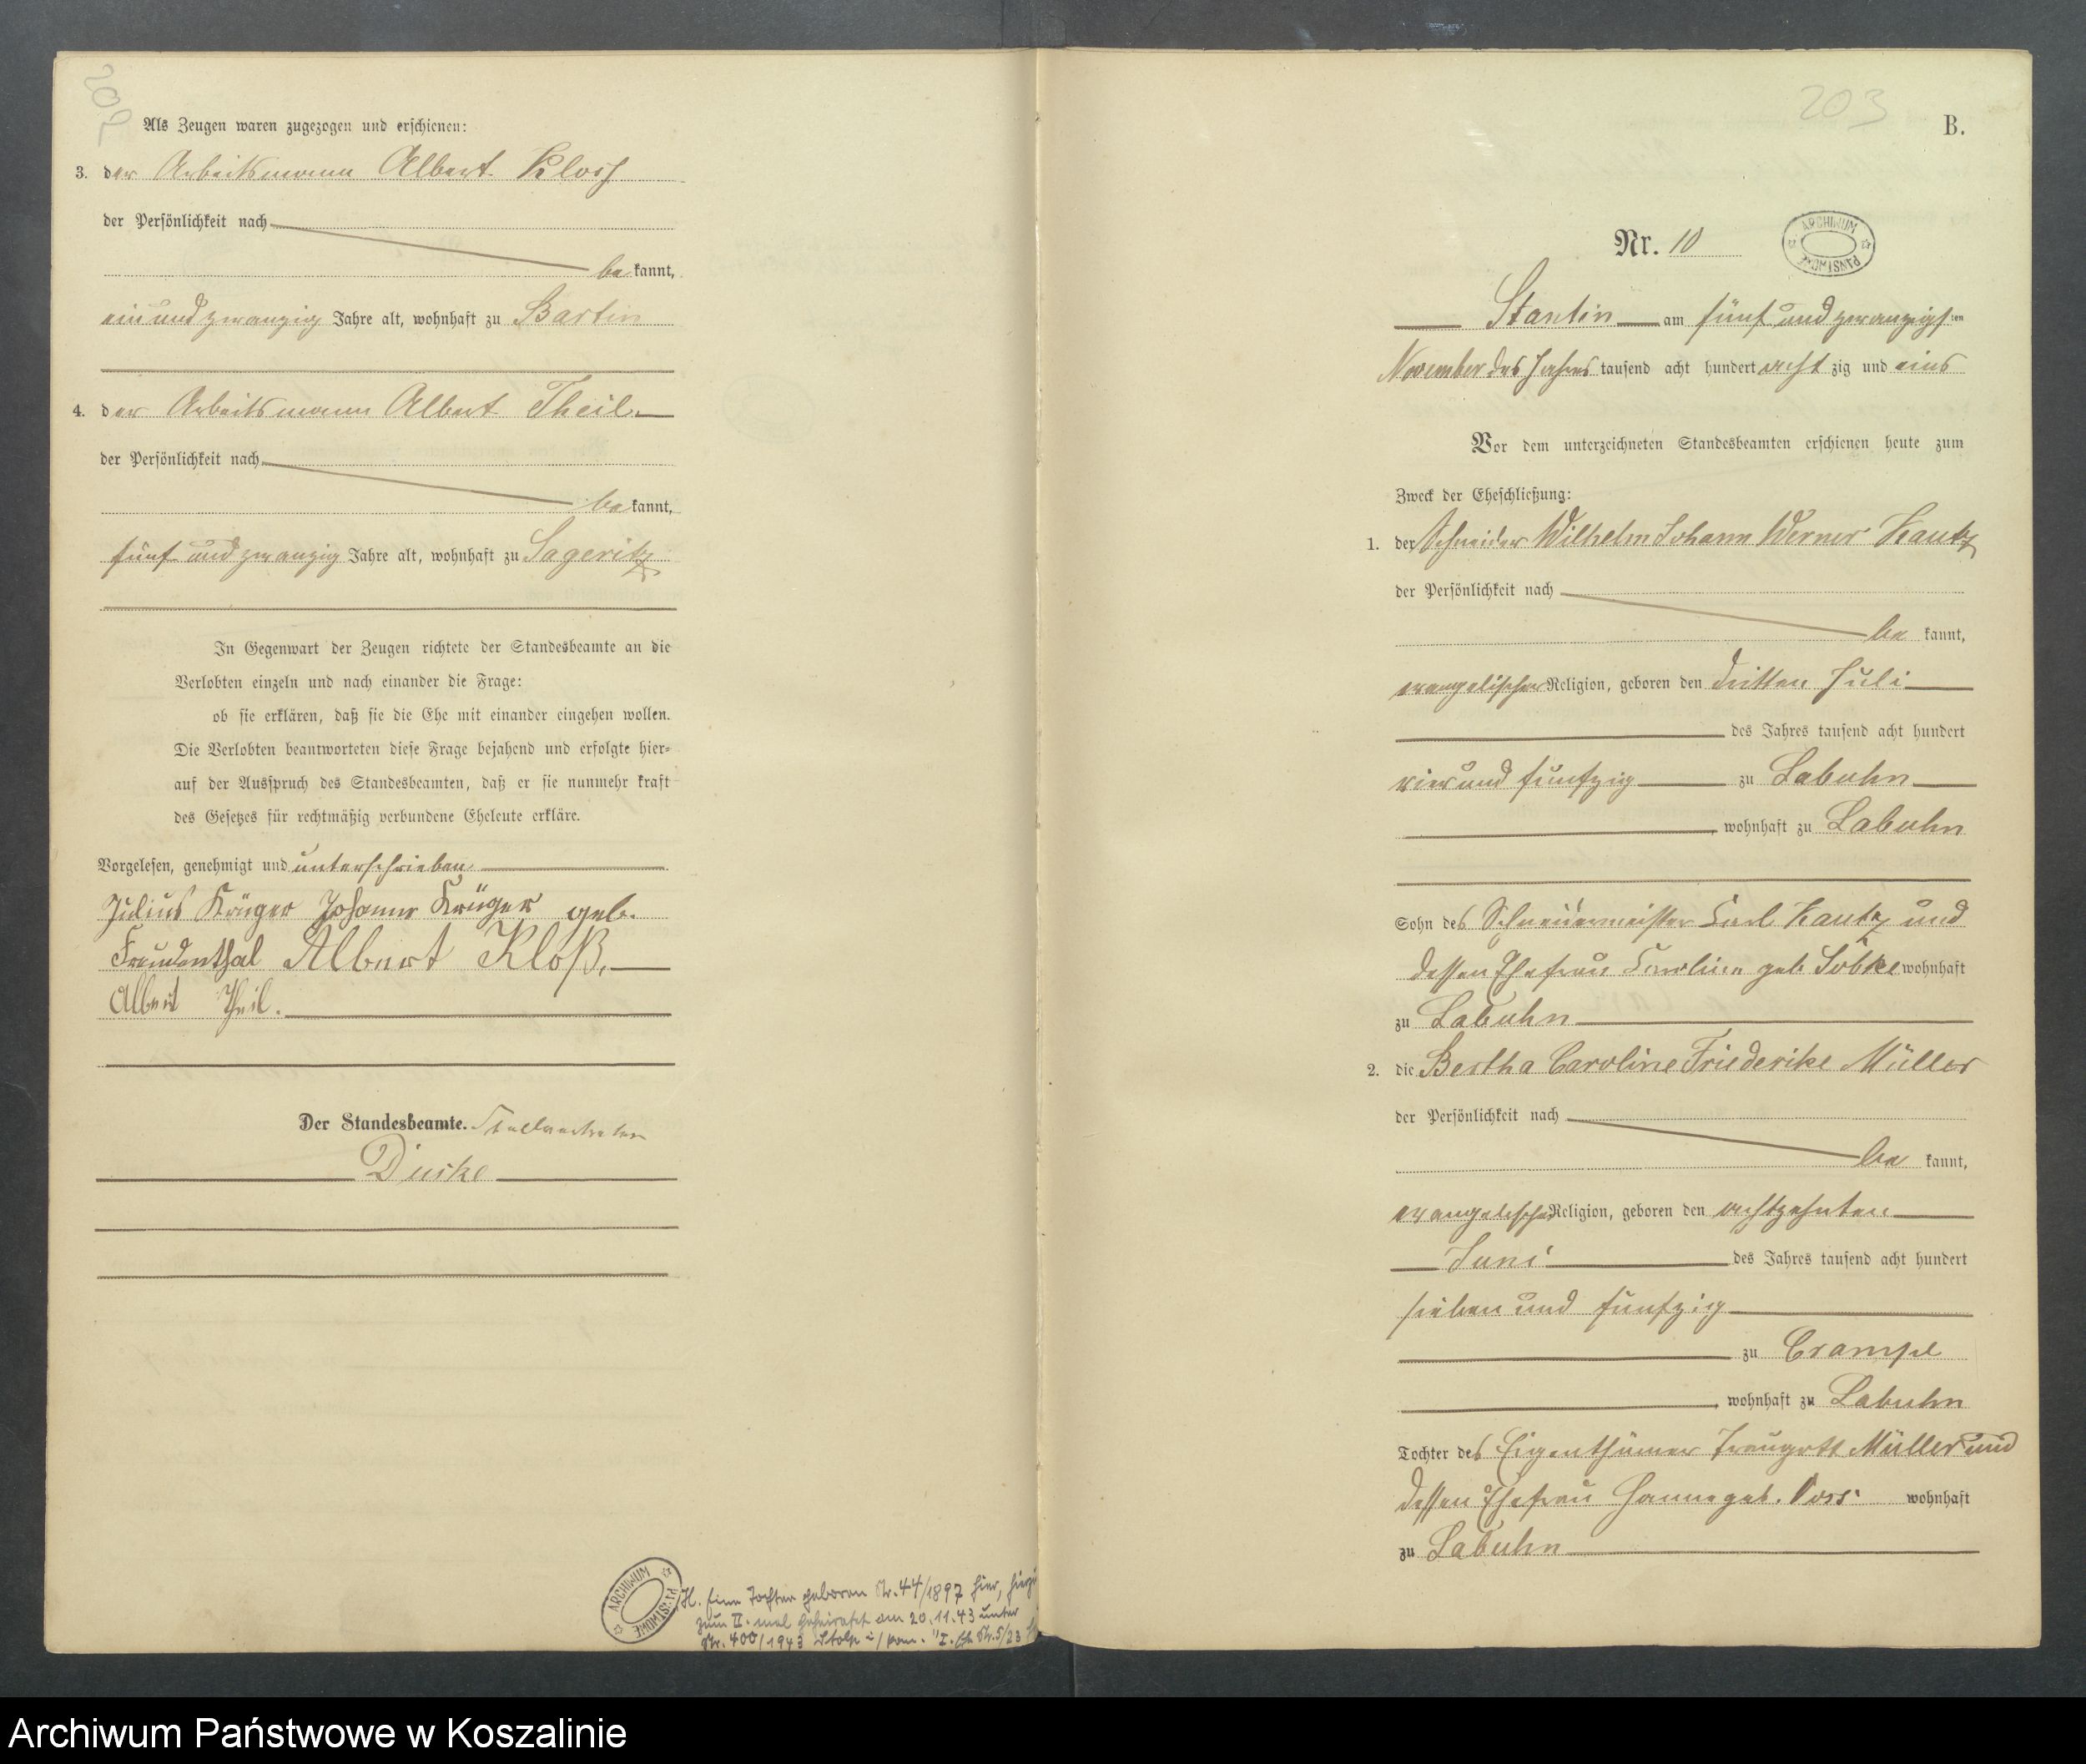 202
Als Zeugen waren zugezogen und erschienen:
3. der Arbeitsmann Albert Kloß
der Persönlichkeit nach
be kannt,
ein und zwanzig Jahre alt, wohnhaft zu Bartin
4. der Arbeitsmann Albert Theil
der Persönlichkeit nach
be kannt,
fünf und zwanzig Jahre alt, wohnhaft zu Sageritz
In Gegenwart der Zeugen richtete der Standesbeamte an die
Verlobten einzeln und nach einander die Frage:
ob sie erklären, daß sie die Ehe mit einander eingehen wollen.
Die Verlobten beantworteten diese Frage bejahend und erfolgte hier-
auf der Ausspruch des Standesbeamten, daß er sie nunmehr kraft
des Gesetzes für rechtmäßig verbundene Eheleute erkläre.
Vorgelesen, genehmigt und unterschrieben
Julius Krüger Johanne Krüger geb.
Freudenthal Albert Kloß.
Albert Theil.
Der Standesbeamte. Stellvertreter
Duske
ARCHIWUM PAŃSTWOWE
H. Eine Tochter geboren Nr. 44/1897 hier,
zum II. mal geheiratet am 20.11.43 unter
Nr. 400/1943 Stolp i/Pom. Nr. 5/23
203
B.
Nr. 10
ARCHIWUM PAŃSTWOWE
Stantin am fünf und zwanzigsten
November des Jahres tausend acht hundert acht zig und eins
Vor dem unterzeichneten Standesbeamten erschienen heute zum
Zweck der Eheschließung:
1. der Schneider Wilhelm Johann Werner Kautz
der Persönlichkeit nach
be kannt,
evangelischer Religion, geboren den dritten Juli
des Jahres tausend acht hundert
vier und fünfzig zu Labuhn
, wohnhaft zu Labuhn
Sohn des Schneidermeister Carl Kautz und
dessen Ehefrau Caroline geb. wohnhaft
zu Labuhn
2. die Bertha Caroline Friederike Müller
der Persönlichkeit nach
be kannt,
evangelischer Religion, geboren den achtzehnten
Juni des Jahres tausend acht hundert
sieben und fünfzig
zu Crampe
, wohnhaft zu Labuhn
Tochter des Eigenthümer Traugott Müller und
dessen Ehefrau Hanne geb. Voss wohnhaft
zu Labuhn
Archiwum Państwowe w Koszalinie